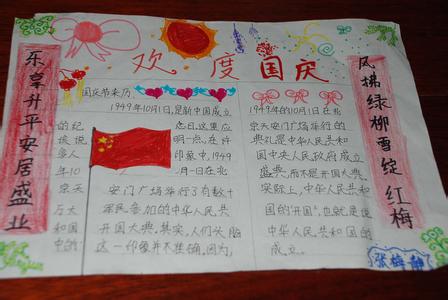 欢度国庆
乐享升平安居盛业
风拂绿柳雪绽红梅
国庆节来历
1949年10月1日,是新中国成立
的纪 念日。这里应
该说 明一点,在许
多人 印象中,1949
年10 月一日在北
京天 安门广场举行了有数十
万 军民参加的中华人民共
和国 开国大典。其实,人们头脑
中的 这一印象并不准确。因为,
1949年的10月1日在北
京天安门广场举行的
典礼是中华人民共和
国中央人民政府成立
盛典,而不是开国大典。
实际上,中华人民共和
国的"开国",也就是说
中华人民共和国的
成立。